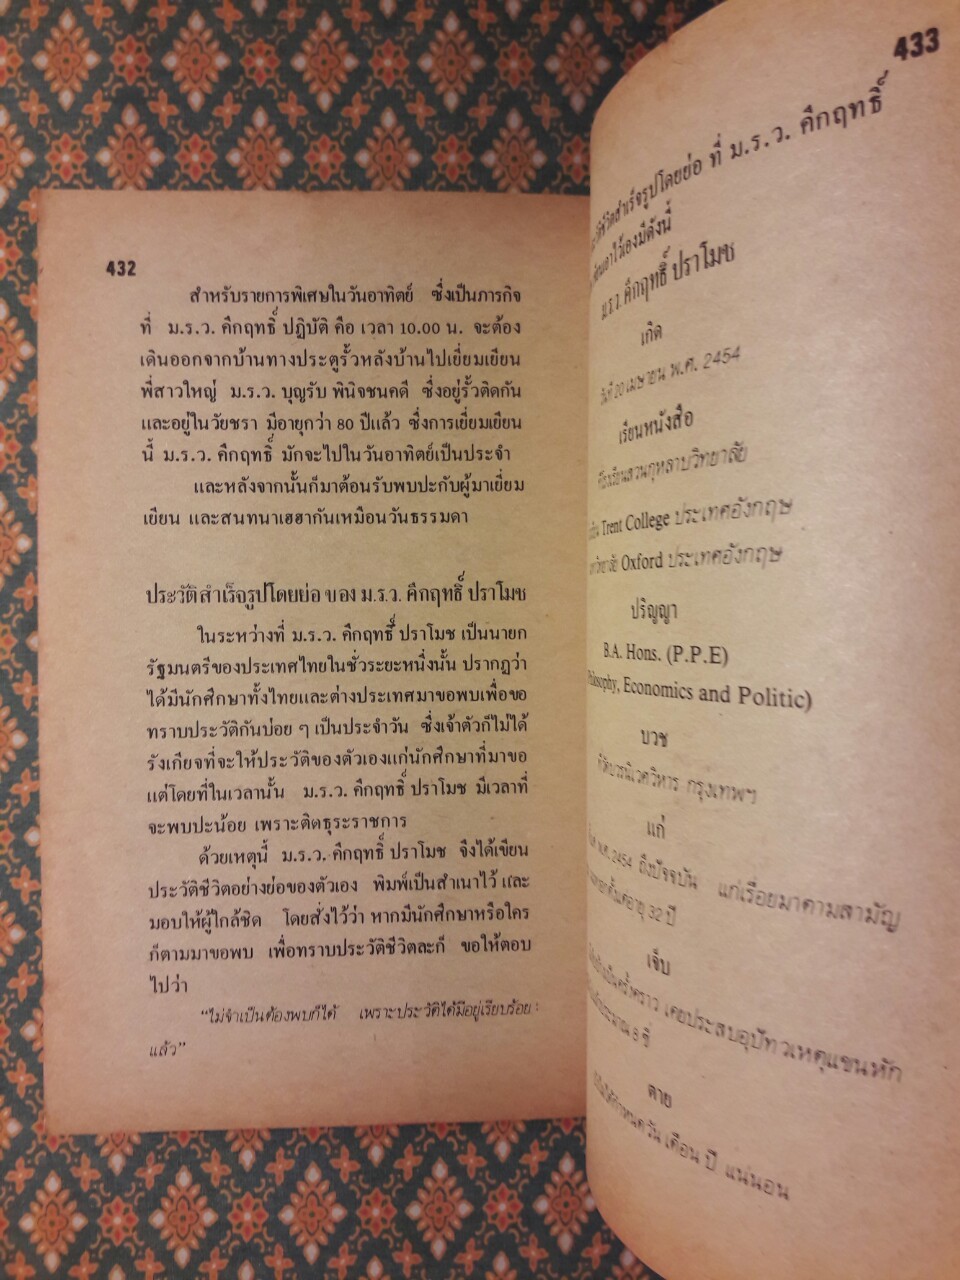 432
สำหรับรายการพิเศษในวันอาทิตย์ ซึ่งเป็นภารกิจ
ที่ ม.ร.ว. คึกฤทธิ์ ปฏิบัติ คือ เวลา 10.00 น. จะต้อง
เดินออกจากบ้านทางประตูรั้วหลังบ้านไปเยี่ยมเยียน
พี่สาวใหญ่ ม.ร.ว. บุญรับ พินิจชนคดี ซึ่งอยู่รั้วติดกัน
และอยู่ในวัยชรา มีอายุกว่า 80 ปีแล้ว ซึ่งการเยี่ยมเยียน
นี้ ม.ร.ว. คึกฤทธิ์ มักจะไปในวันอาทิตย์เป็นประจำ
และหลังจากนั้นก็มาต้อนรับพบปะกับผู้มาเยี่ยม
เยียน และสนทนาเฮฮากันเหมือนวันธรรมดา
ประวัติสำเร็จรูปโดยย่อ ของ ม.ร.ว. คึกฤทธิ์ ปราโมช
ในระหว่างที่ ม.ร.ว. คึกฤทธิ์ ปราโมช เป็นนายก
รัฐมนตรีของประเทศไทยในชั่วระยะหนึ่งนั้น ปรากฏว่า
ได้มีนักศึกษาทั้งไทยและต่างประเทศมาขอพบเพื่อขอ
ทราบประวัติกันบ่อย ๆ เป็นประจำวัน ซึ่งเจ้าตัวก็ไม่ได้
รังเกียจที่จะให้ประวัติของตัวเองแก่นักศึกษาที่มาขอ
แต่โดยที่ในเวลานั้น ม.ร.ว. คึกฤทธิ์ ปราโมช มีเวลาที่
จะพบปะน้อย เพราะติดธุระราชการ
ด้วยเหตุนี้ ม.ร.ว. คึกฤทธิ์ ปราโมช จึงได้เขียน
ประวัติชีวิตอย่างย่อของตัวเอง พิมพ์เป็นสำเนาไว้ และ
มอบให้ผู้ใกล้ชิด โดยสั่งไว้ว่า หากมีนักศึกษาหรือใคร
ก็ตามมาขอพบ เพื่อทราบประวัติชีวิตละก็ ขอให้ตอบ
ไปว่า
“ไม่จำเป็นต้องพบก็ได้ เพราะประวัติได้มีอยู่เรียบร้อย
แล้ว”
433
สำเร็จรูปโดยย่อ ที่ ม.ร.ว. คึกฤทธิ์
ไว้เองมีดังนี้
ม.ร.ว. คึกฤทธิ์ ปราโมช
เกิด
วันที่ 20 เมษายน พ.ศ. 2454
เรียนหนังสือ
โรงเรียนสวนกุหลาบวิทยาลัย
Trent College ประเทศอังกฤษ
Oxford ประเทศอังกฤษ
ปริญญา
B.A. Hons. (P.P.E)
Economics and Politic)
บวช
วัดบวรนิเวศวิหาร กรุงเทพฯ
แก่
พ.ศ. 2454 ถึงปัจจุบัน แก่เรื่อยมาตามสามัญ
อายุ 32 ปี
เจ็บ
ครั้งคราว เคยประสบอุปัทวเหตุแขนหัก
ประมาณ 8 ซี่
ตาย
กำหนดวัน เดือน ปี แน่นอน